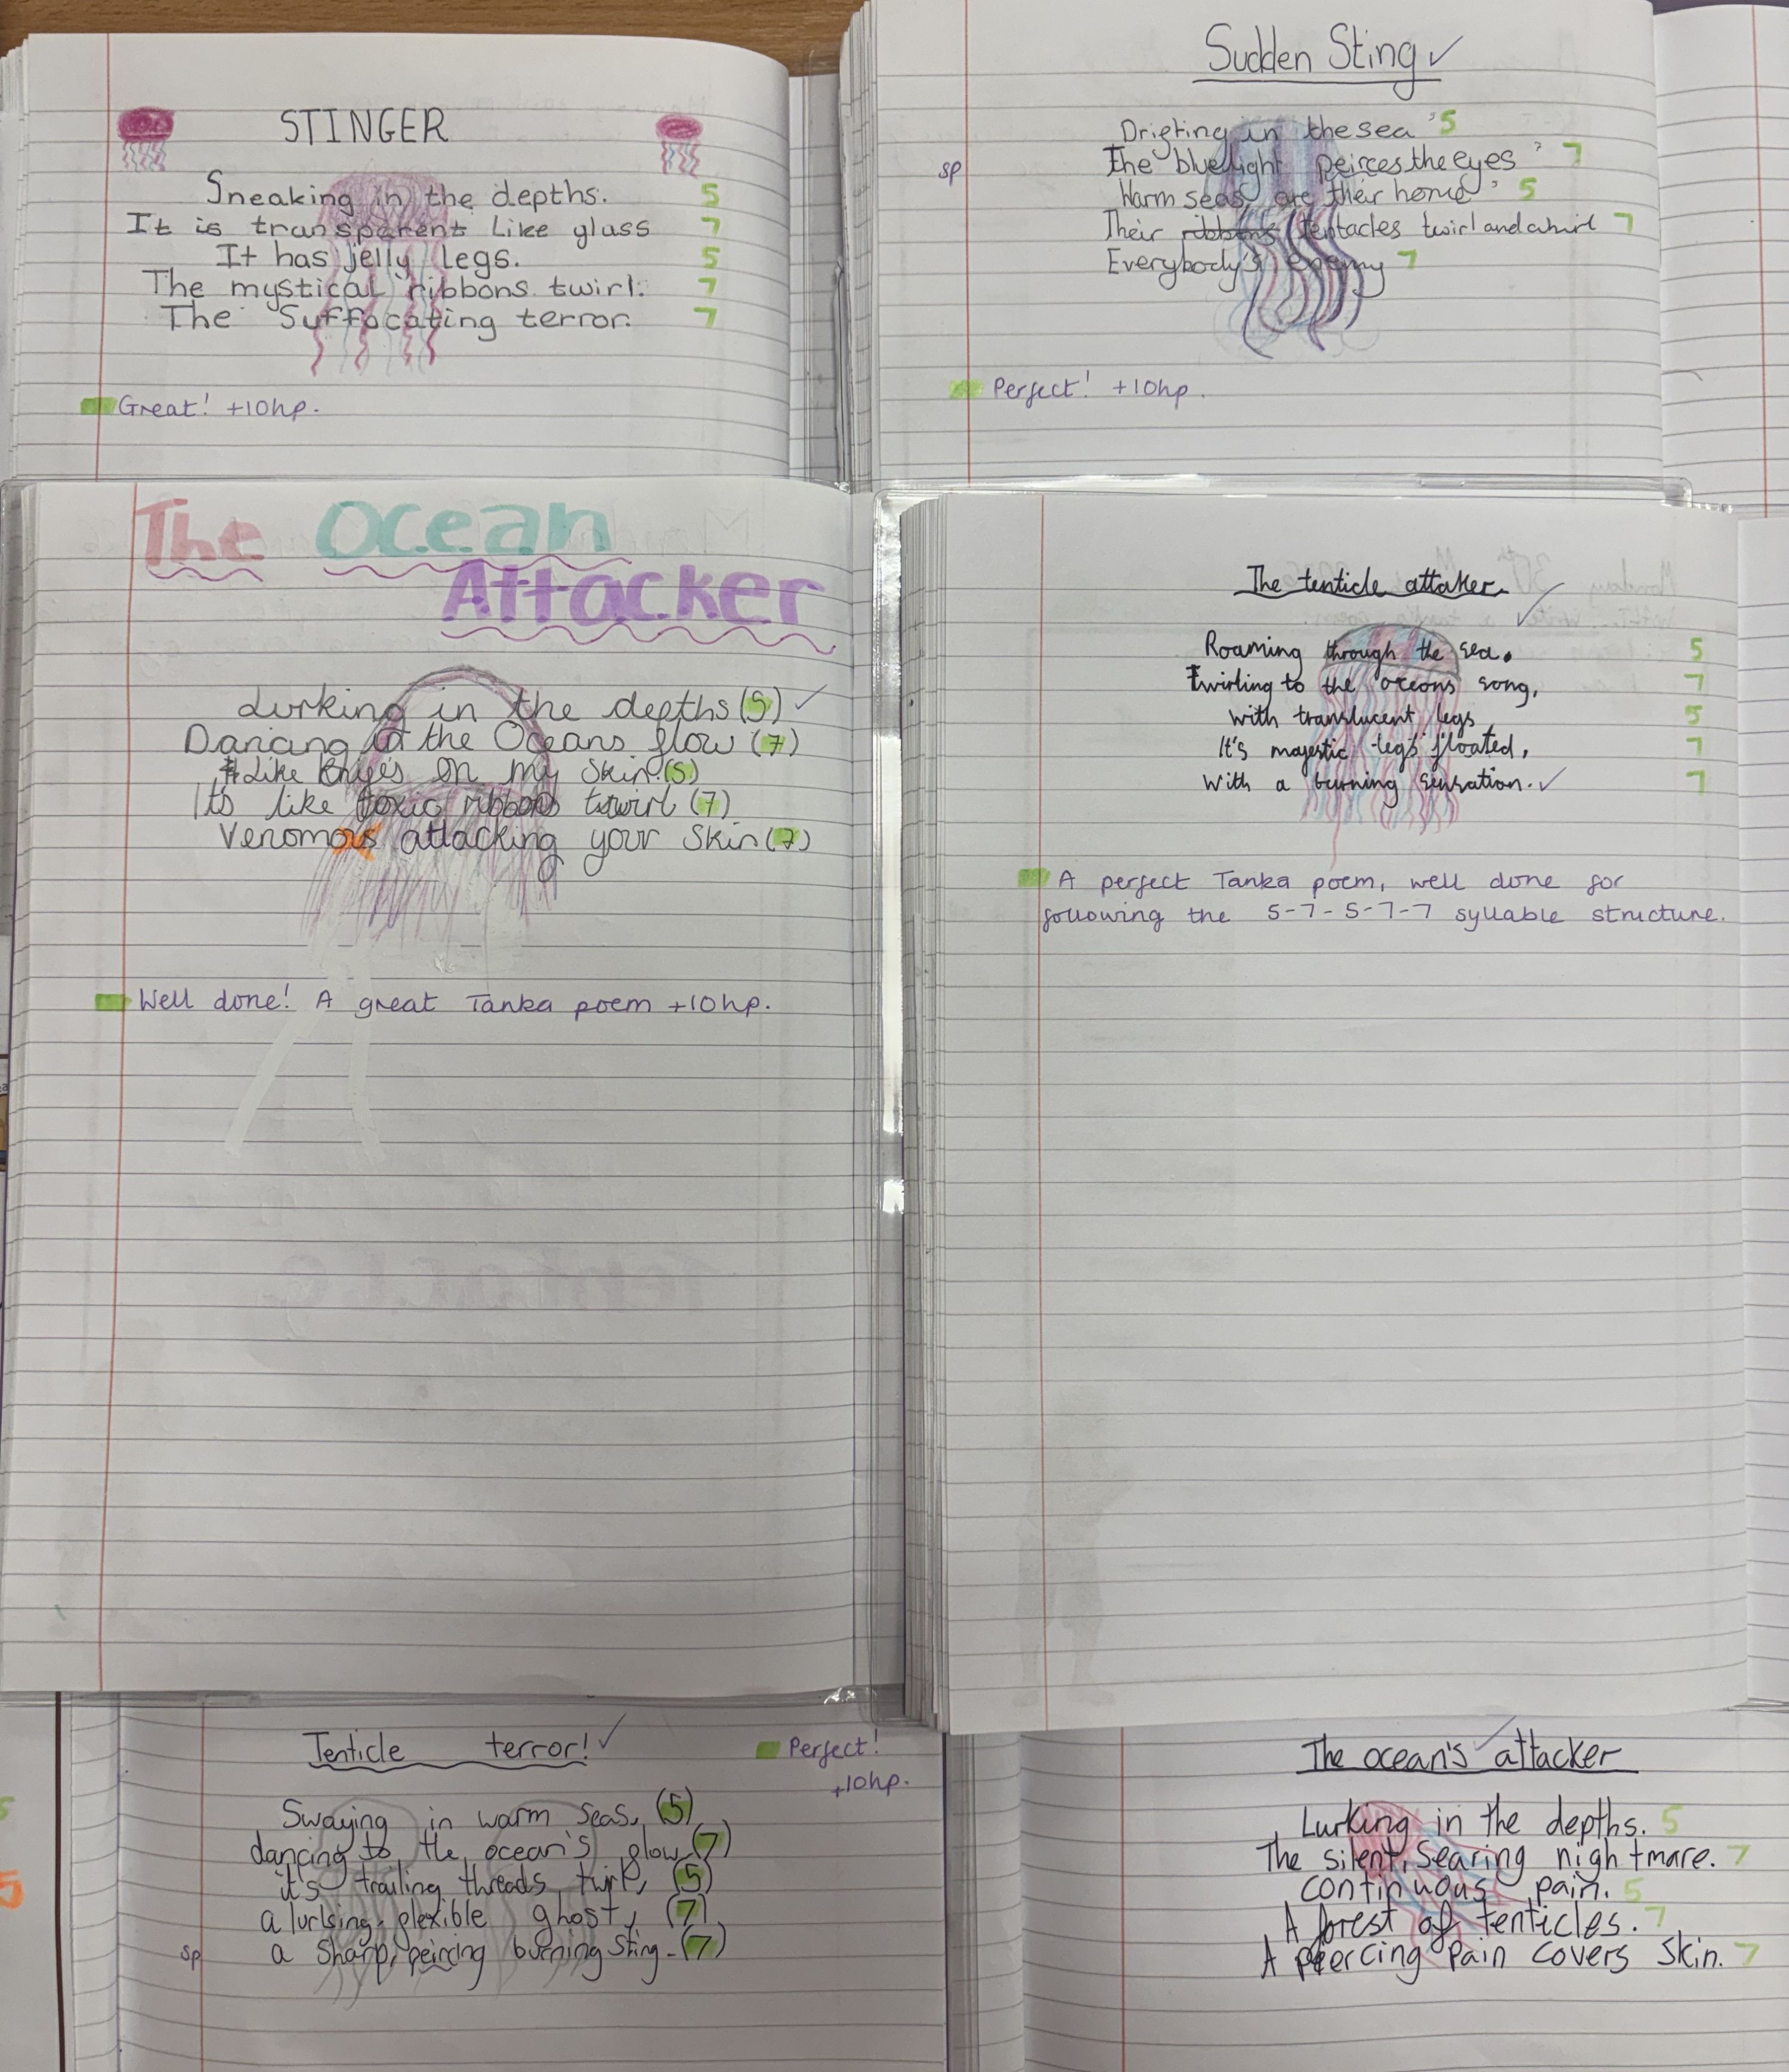 STINGER
Sneaking in the depths. 5
It is transparent like glass 7
It has jelly legs. 5
The mystical ribbons twirl. 7
The Suffocating terror. 7
Great! +10hp.
Sudden Sting
Drifting in the sea 5
The blue light peirces the eyes 7
sp
Warm seas are their home 5
Their ribbons tentacles twirl and whirl 7
Everybody's enemy 7
Perfect! +10hp.
The Ocean
Attacker
Lurking in the depths (5)
Dancing to the Oceans flow (7)
Like knives on my skin. (5)
Its like toxic ribbons twirl (7)
Venomous attacking your Skin (7)
Well done! A great Tanka poem +10hp.
The tenticle attaker
Roaming through the sea. 5
Twirling to the oceans song, 7
with translucent legs 5
It's majestic legs floated, 7
With a burning sensation. 7
A perfect Tanka poem, well done for
following the 5-7-5-7-7 syllable structure.
Tenticle terror!
Perfect!
+10hp.
Swaying in warm seas, (5)
dancing to the ocean's glow (7)
it's trailing threads twirl, (5)
a lurking, flexible ghost, (7)
sp
a sharp, peircing burning sting. (7)
The ocean's attacker
Lurking in the depths. 5
The silent, Searing nightmare. 7
continuous pain. 5
A forest of tenticles. 7
A peercing pain covers skin. 7